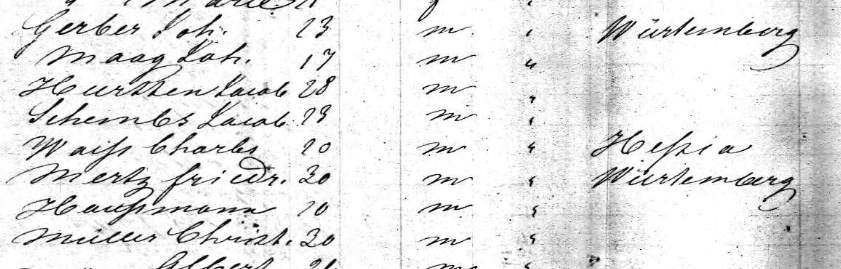 Gerber Joh. 23 m " Würtemberg
Maag Joh. 17 m "
Jacob 28 m "
Schembs Jacob 23 m "
Waiß Charles 20 m " Heßia
Mertz Friedr. 30 m " Würtemberg
Haußmann 20 m "
Müller Christ. 30 m "
Albert